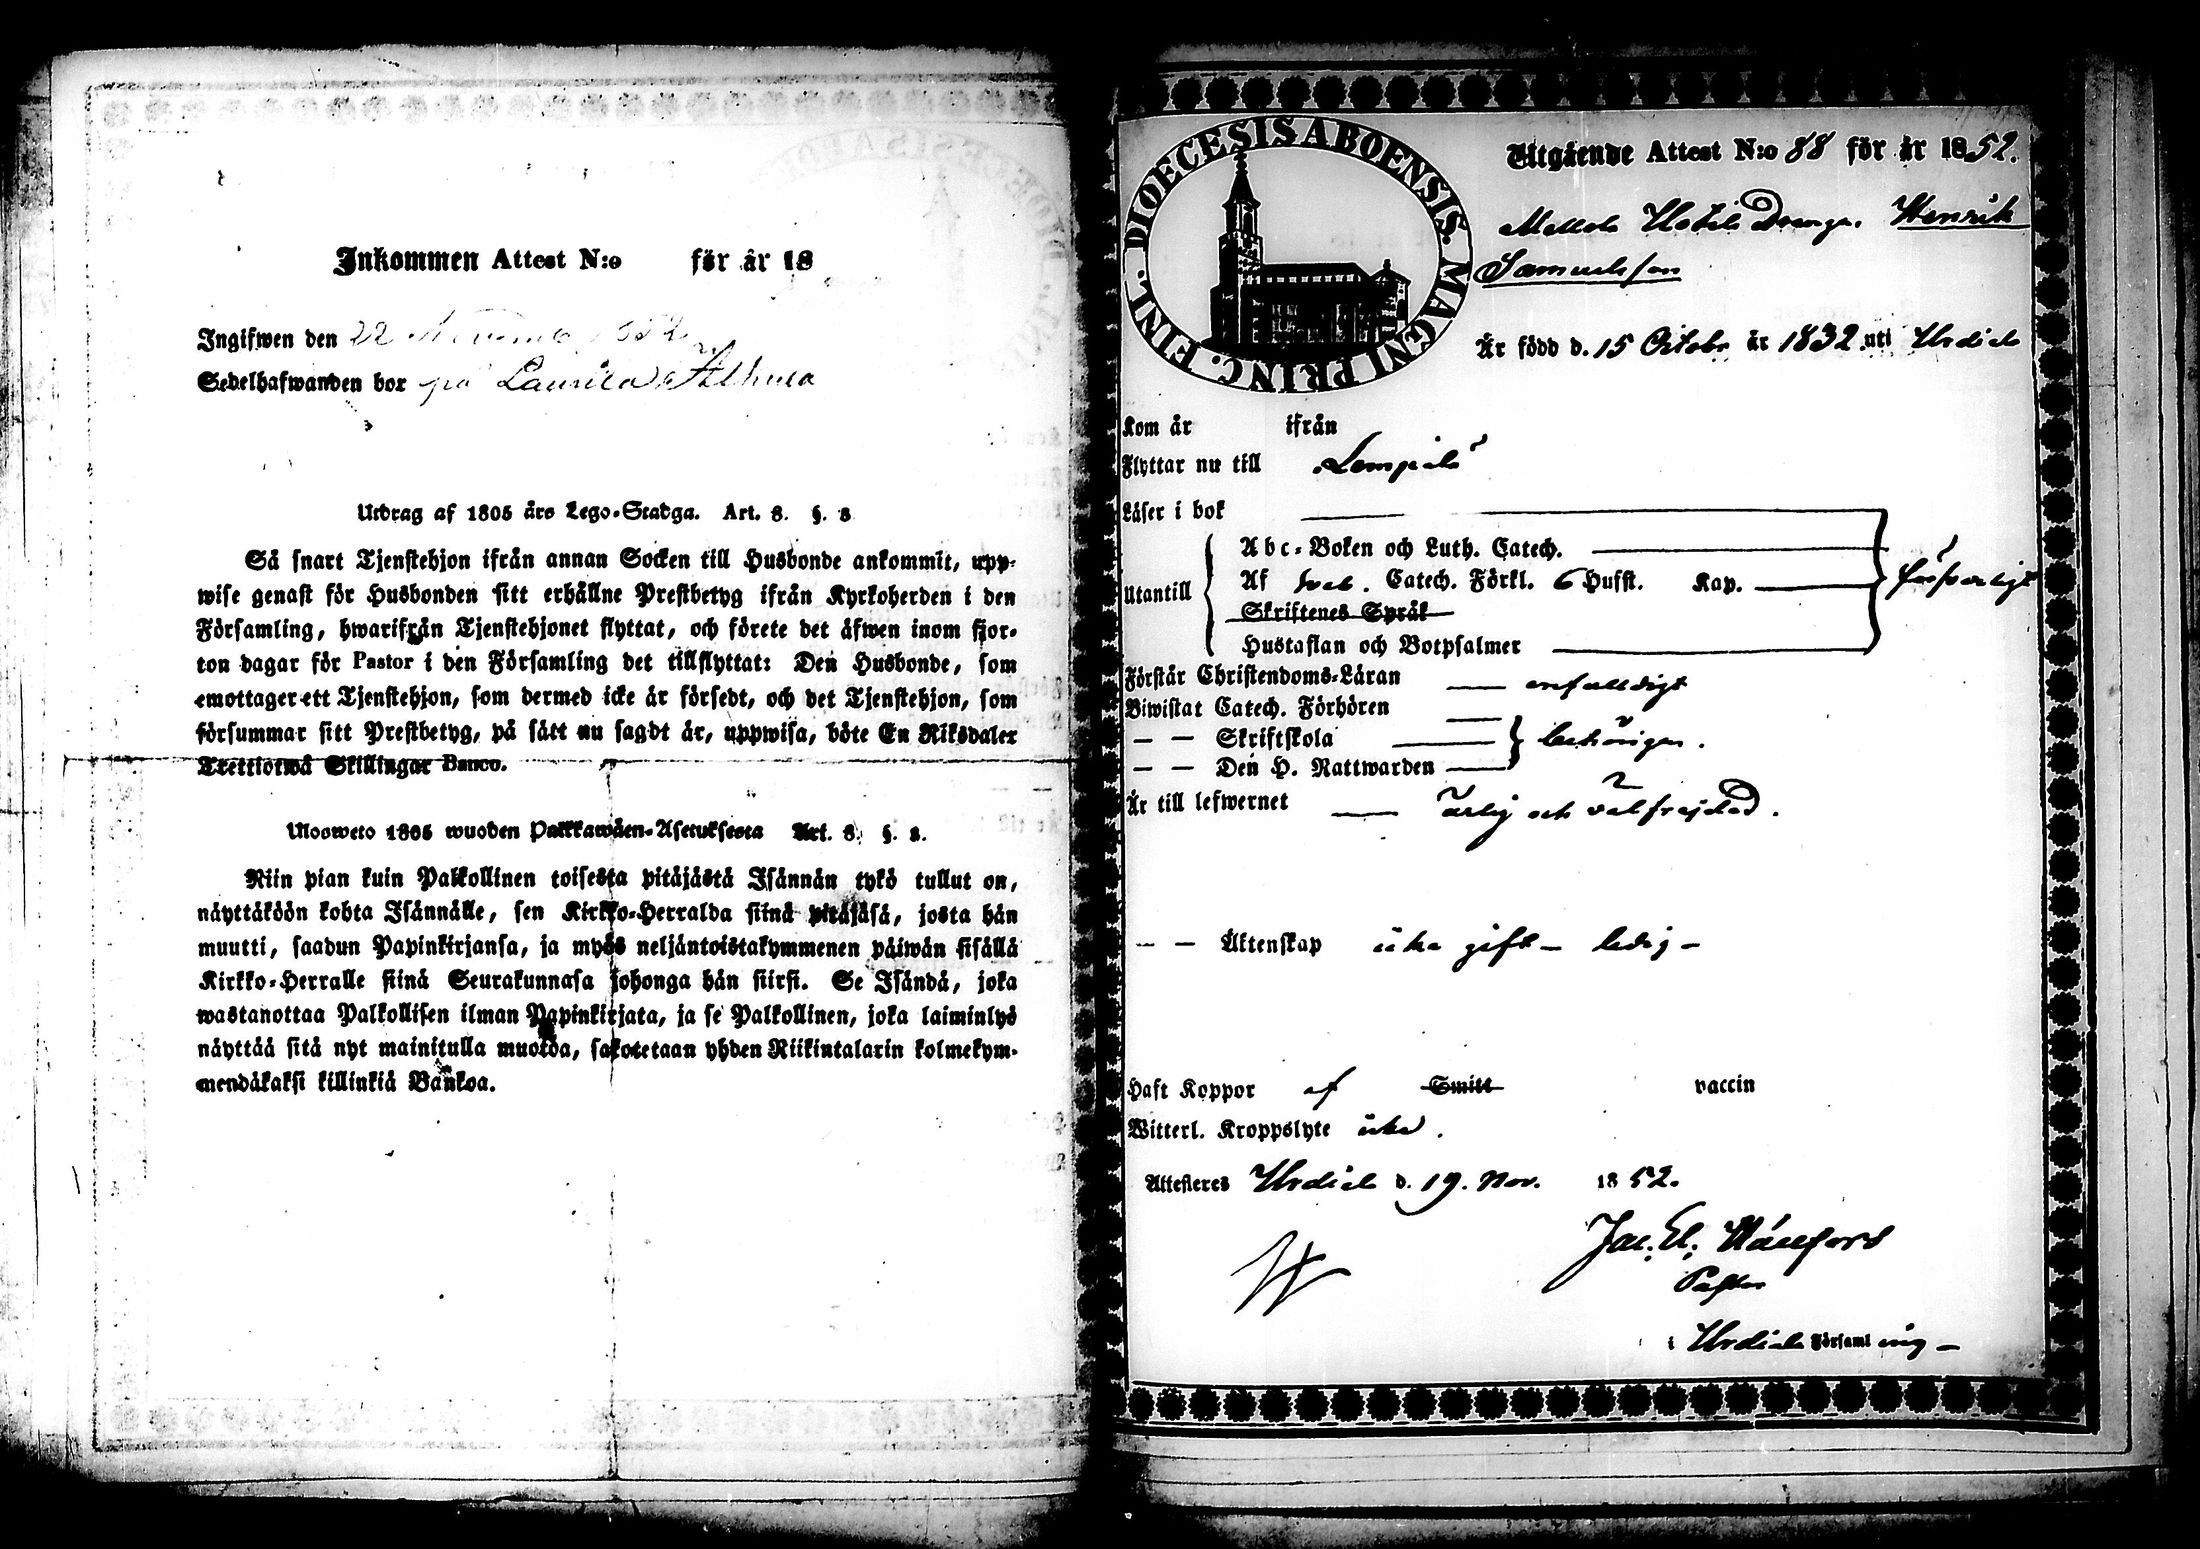 Inkommen Attest N:o för år 18
Ingifwen den 22 Novemb 1852
Sedelhafwanden bor på Laurila Alhula
Utdrag af 1805 års Lego-Stadga. Art. 8. §. 8
Så snart Tjenstehjon ifrån annan Socken till Husbonde ankommit, upp-
wise genast för Husbonden sitt erhållne Prestbetyg ifrån Kyrkoherden i den
Församling, hwarifrån Tjenstehjonet flyttat, och förete det äfwen inom fjor-
ton dagar för Pastor i den Församling det tillflyttat: Den Husbonde, som
emottager ett Tjenstehjon, som dermed icke är försedt, och det Tjenstehjon, som
försummar sitt Prestbetyg, på sätt nu sagdt är, uppwisa, böte En Riksdaler
Trettiotwå Skillingar Banco.
Ulosweto 1805 wuoden Palkkawäen-Asetuksesta Art. 8. §. 8.
Niin pian kuin Palkollinen toisesta pitäjästä Isännän tykö tullut on,
näyttäköön kohta Isännälle, sen Kirkko-Herralda siinä pitäjäsä, josta hän
muutti, saadun Papinkirjansa, ja myös neljäntoistakymmenen päiwän sisällä
Kirkko-Herralle siinä Seurakunnasa johonga hän siirsi. Se Isändä, joka
wastanottaa Palkollisen ilman Papinkirjata, ja se Palkollinen, joka laiminlyö
näyttää sitä nyt mainitulla muotoa, sakotetaan yhden Riikintalarin kolmekym-
mendäkaksi killinkiä Bankoa.
DIOECESIS ABOENSIS. MAGNI PRINC. FINL.
Utgående Attest N:o 88 för år 1852.
Drenge. Henrik
Samuelsson
Är född d. 15 Octobr år 1832 uti Urdiala
Kom år ifrån
Flyttar nu till Lempälä
Läser i bok
Utantill
Abc-Boken och Luth. Catech.
Af Sveb. Catech. Förkl. 6 Hufst. Kap.
försvarligt
Skriftenes Språk
Hustaflan och Botpsalmer
Förstår Christendoms-Läran enfaldigt
Biwistat Catech. Förhören
— — Skriftskola behörigen.
— — Den H. Nattwarden
Är till lefwernet ärlig och välfrejdad.
— — Äktenskap icke gift — ledig —
Haft Koppor af Smitt vaccin
Witterl. Kroppslyte icke.
Attesteras Urdiala d. 19. Nov. 1852.
Jac. El.
Pastor
i Urdiala Församling —